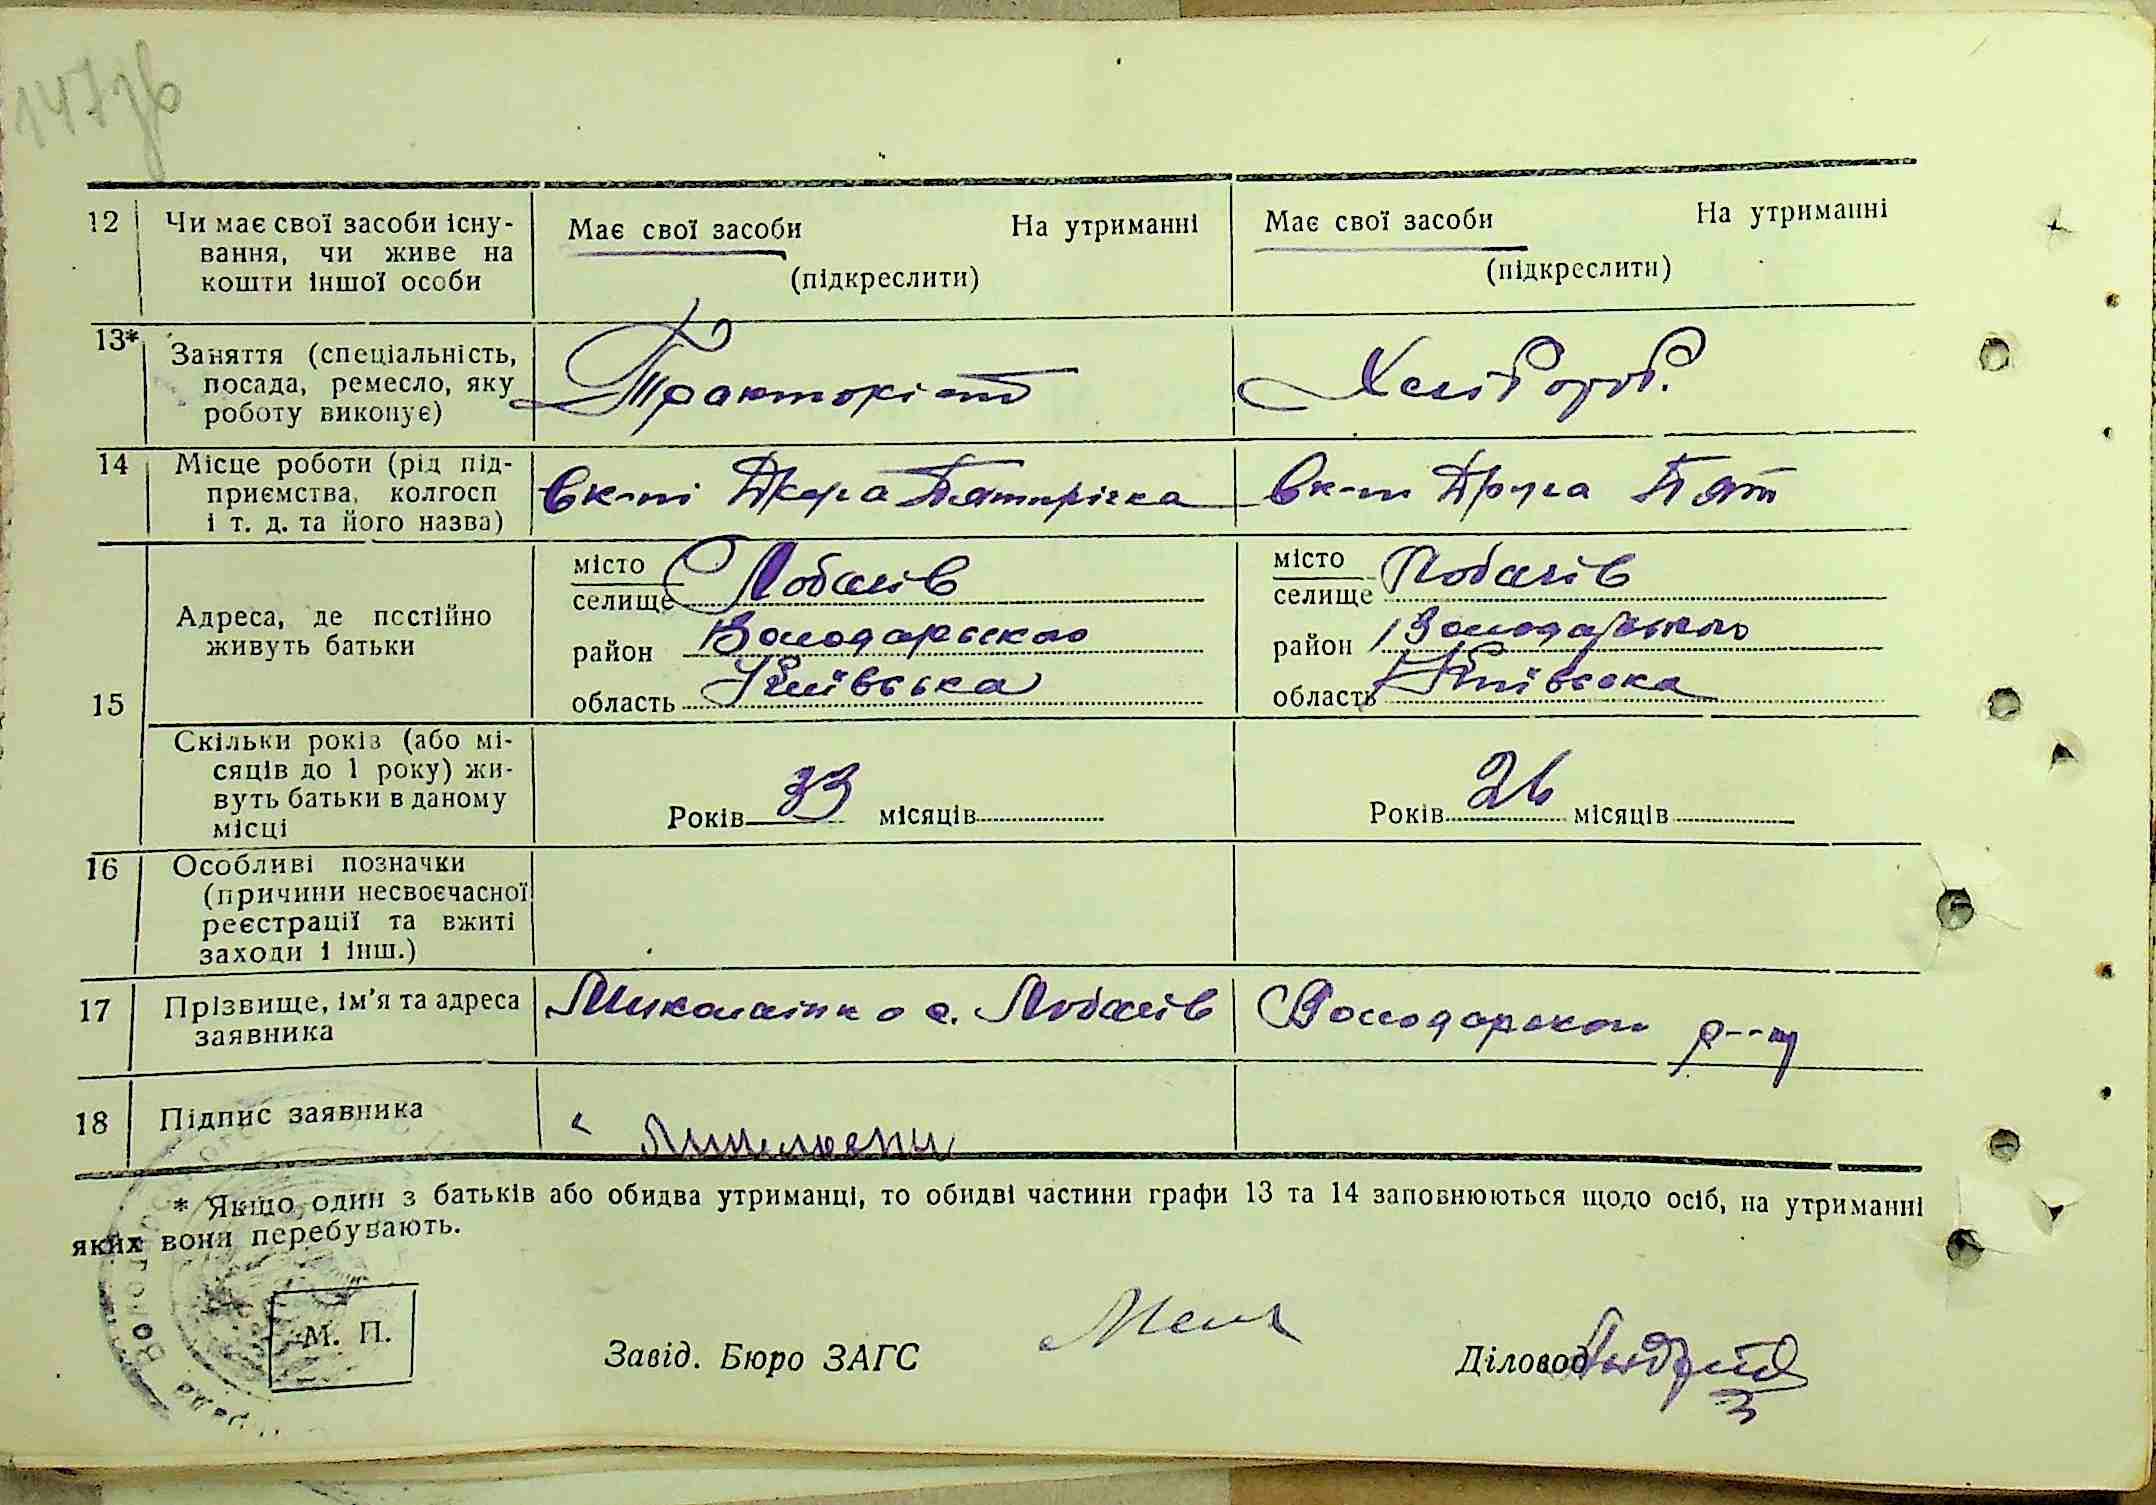 147зв
12 Чи має свої засоби існу- Має свої засоби На утриманні Має свої засоби На утриманні
вання, чи живе на
кошти іншої особи (підкреслити) (підкреслити)
13* Заняття (спеціальність,
посада, ремесло, яку Тракторіст Хлібороб.
роботу виконує)
14 Місце роботи (рід під-
приємства, колгосп Друга Пятирічка Друга Пят
і т. д. та його назва)
15 Адреса, де постійно
живуть батьки
місто
селище Лобачів
район Володарського
область Київська
місто
селище Лобачів
район Володарського
область Київська
Скільки років (або мі-
сяців до 1 року) жи-
вуть батьки в даному
місці
Років 33 місяців
Років 26 місяців
16 Особливі позначки
(причини несвоєчасної
реєстрації та вжиті
заходи і інш.)
17 Прізвище, ім'я та адреса
заявника
с. Лобачів р-ну
18 Підпис заявника
* Якщо один з батьків або обидва утриманці, то обидві частини графи 13 та 14 заповнюються щодо осіб, на утриманні
яких вони перебувають.
М. П.
Завід. Бюро ЗАГС
Діловод